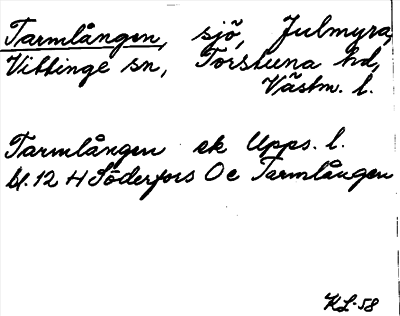 Tarmlången, sjö, Julmyra,
Vittinge sn, Torstuna hd,
Västm. l.
Tarmlången ek Upps. l.
bl. 12 H Söderfors Oe Tarmlången
KL-58